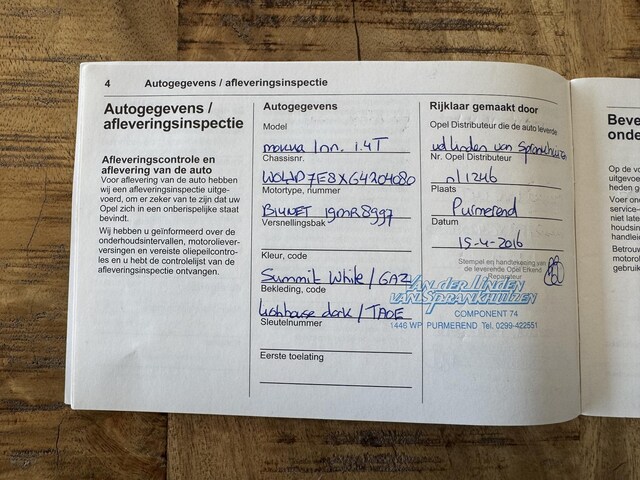 4 Autogegevens / afleveringsinspectie
Autogegevens /
afleveringsinspectie
Afleveringscontrole en
aflevering van de auto
Voor aflevering van de auto hebben
wij een afleveringsinspectie uitge-
voerd, om er zeker van te zijn dat uw
Opel zich in een onberispelijke staat
bevindt.
Wij hebben u geïnformeerd over de
onderhoudsintervallen, motoroliever-
versingen en vereiste oliepeilcontro-
les en u hebt de controlelijst van de
afleveringsinspectie ontvangen.
Autogegevens
Model
mokka Inn. 1.4T
Chassisnr.
W0LJD7E8XG4204080
Motortype, nummer
B14NET 19MR8997
Versnellingsbak
Kleur, code
Summit White / GAZ
Bekleding, code
dark / TAOE
Sleutelnummer
Eerste toelating
Rijklaar gemaakt door
Opel Distributeur die de auto leverde
vd Linden van Sprankhuizen
Nr. Opel Distributeur
nl1246
Plaats
Purmerend
Datum
15-4-2016
Stempel en handtekening van
de leverende Opel Erkend
Reparateur
VAN DER LINDEN
VAN SPRANKHUIZEN
COMPONENT 74
1446 WP PURMEREND Tel. 0299-422551
Beve
onde
Op de vo
uitgevoe
geven el
Voer ond
service-
niet late
houdsin
handleid
Betrouw
motorol
gebruik